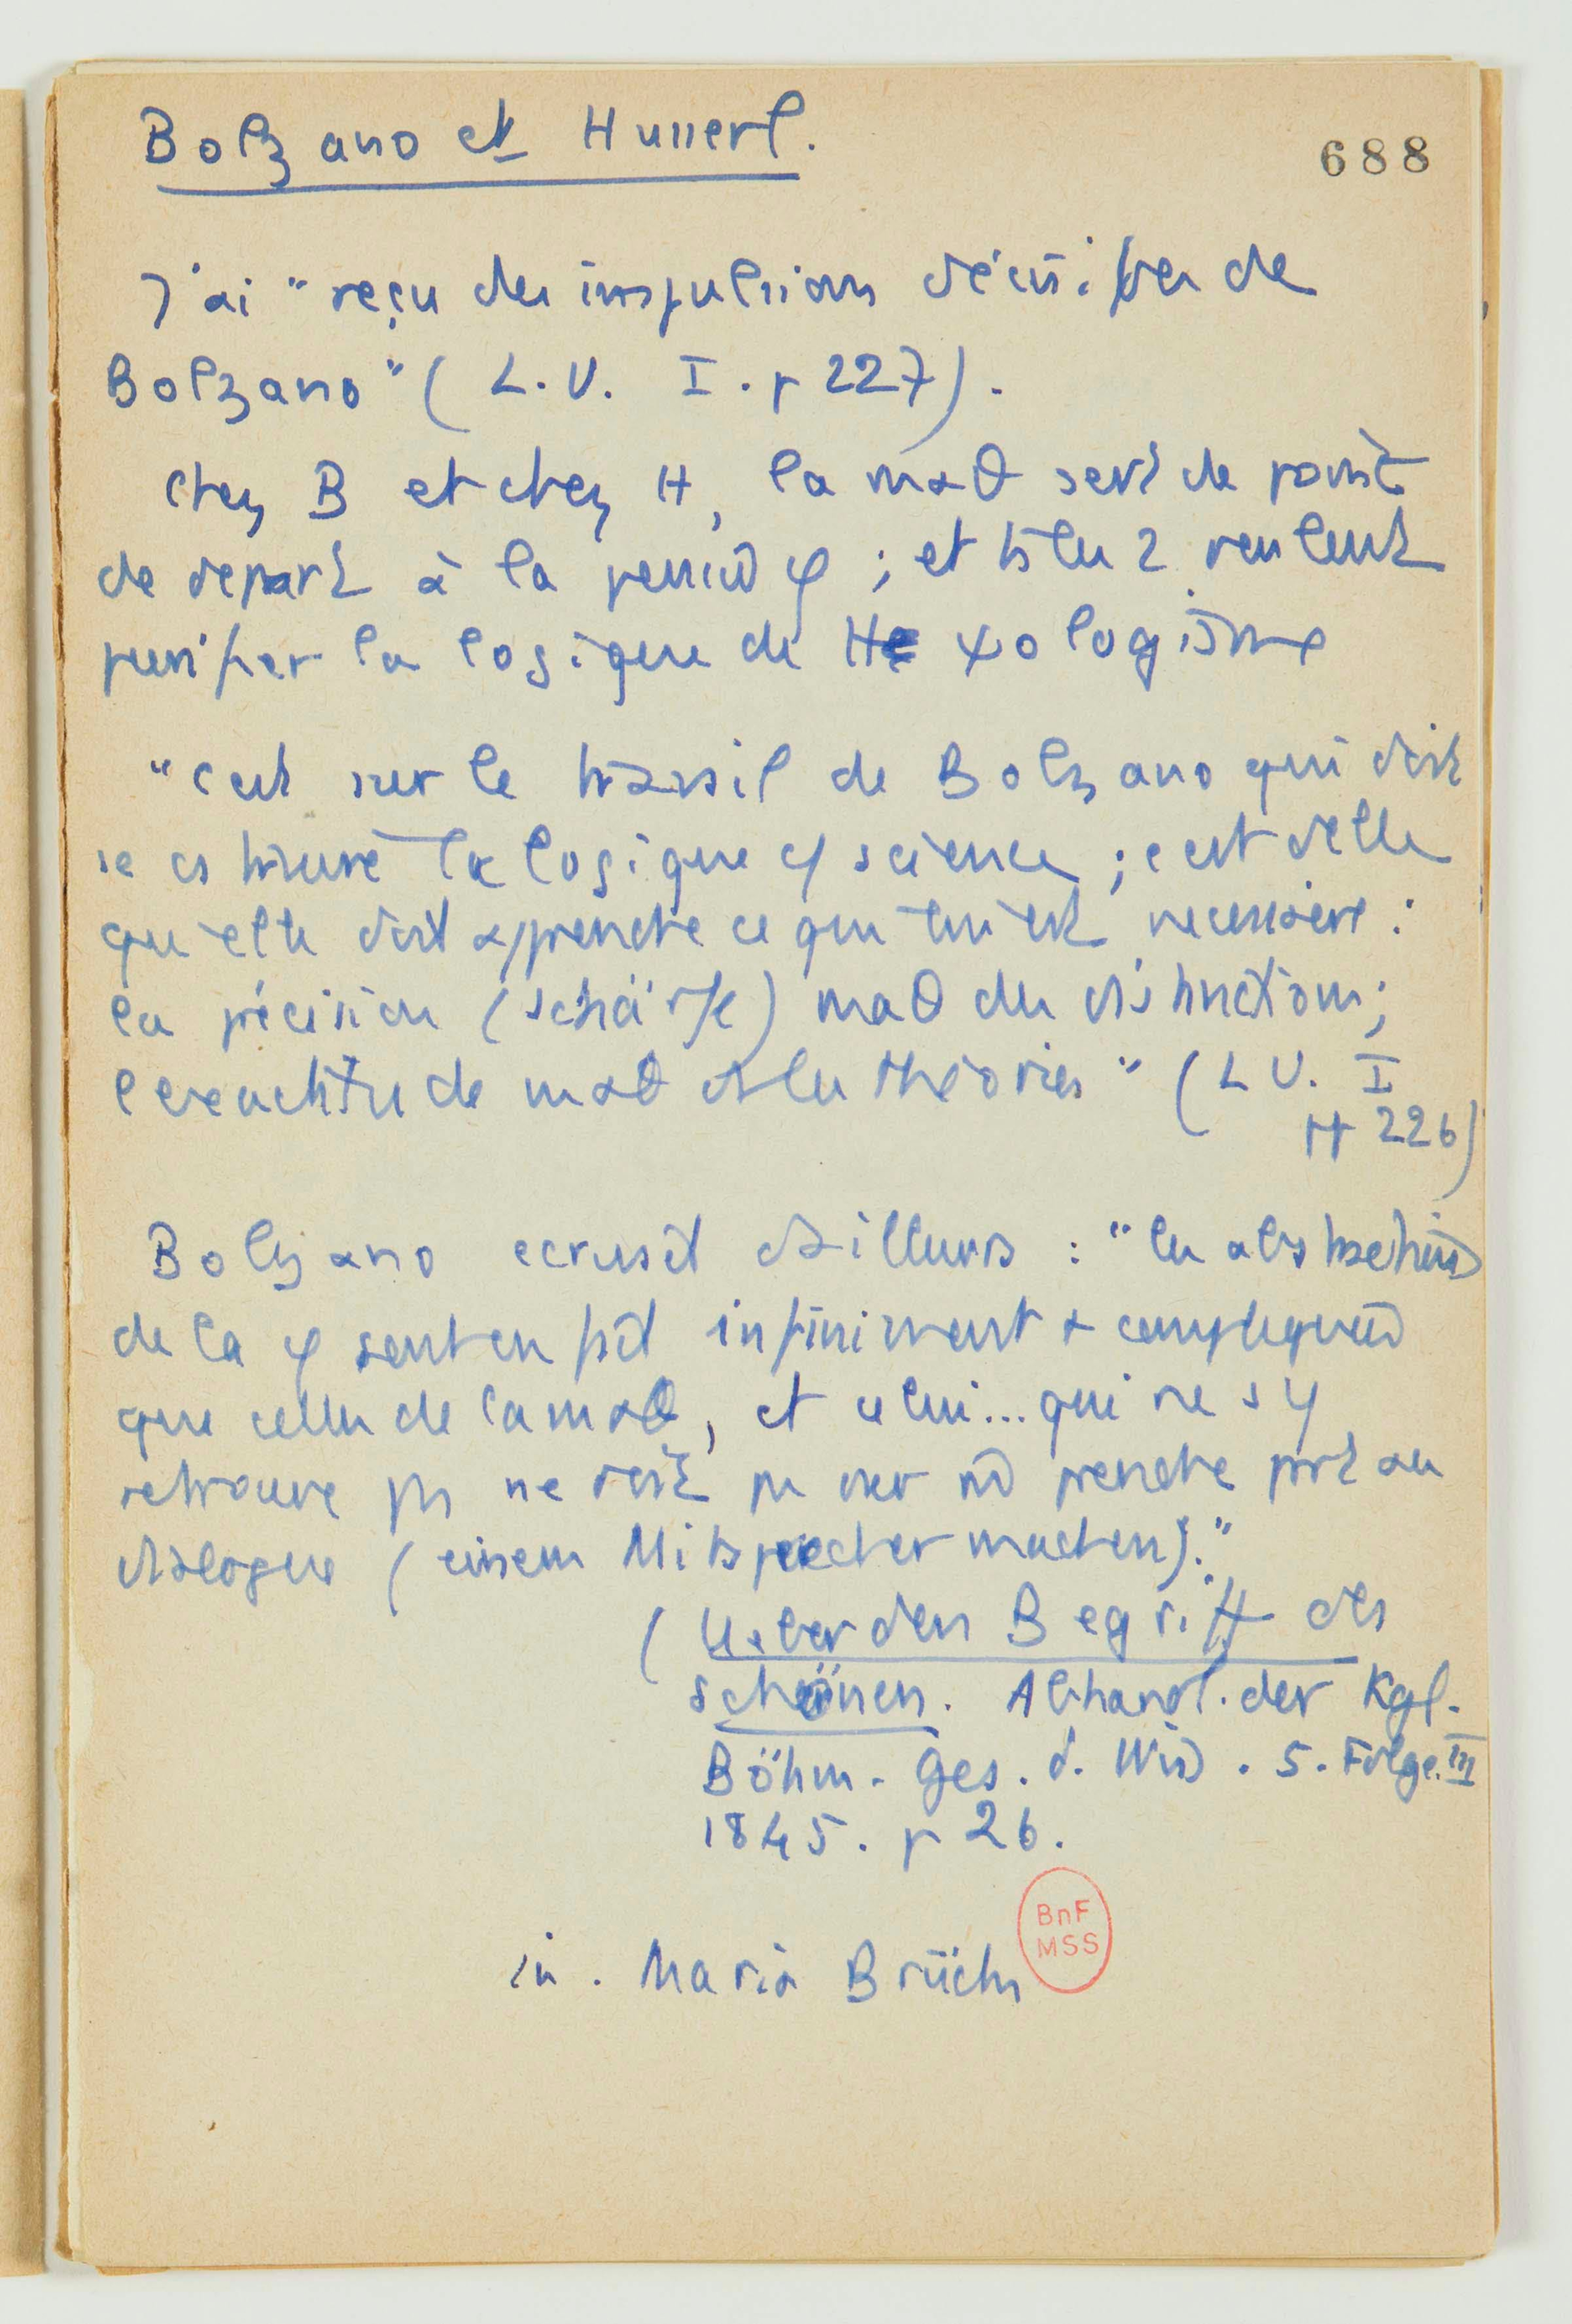 Bolzano et Husserl.
688
J'ai "reçu des impulsions décisives de
Bolzano" (L.V. I. p 227).
Chez B et chez H, la maθ sert de point
de depart à la pensée φ ; et ts les 2 veulent
purifier la logique de ψologisme
"C'est sur le travail de Bolzano que doit
se construire la logique cō science ; c'est de lui
qu'elle doit apprendre ce qui lui est necessaire :
la précision (schärfe) maθ des distinctions ;
l'exactitude maθ ds les théories" (LV. I
226)
Bolzano ecrivait d'ailleurs : "les abstractions
de la φ sont en fait infiniment + compliquées
que celles de la maθ, et celui... qui ne s'y
retrouve pas ne doit pas oser prendre part au
dialogue (einem Mitsprecher machen)."
(Ueber den Begriff des
schönen. Abhandl. der Kgl.
Böhm. Ges. d. Wiss. 5. Folge. III
1845. p 26.
in. Maria Brück
BnF
MSS